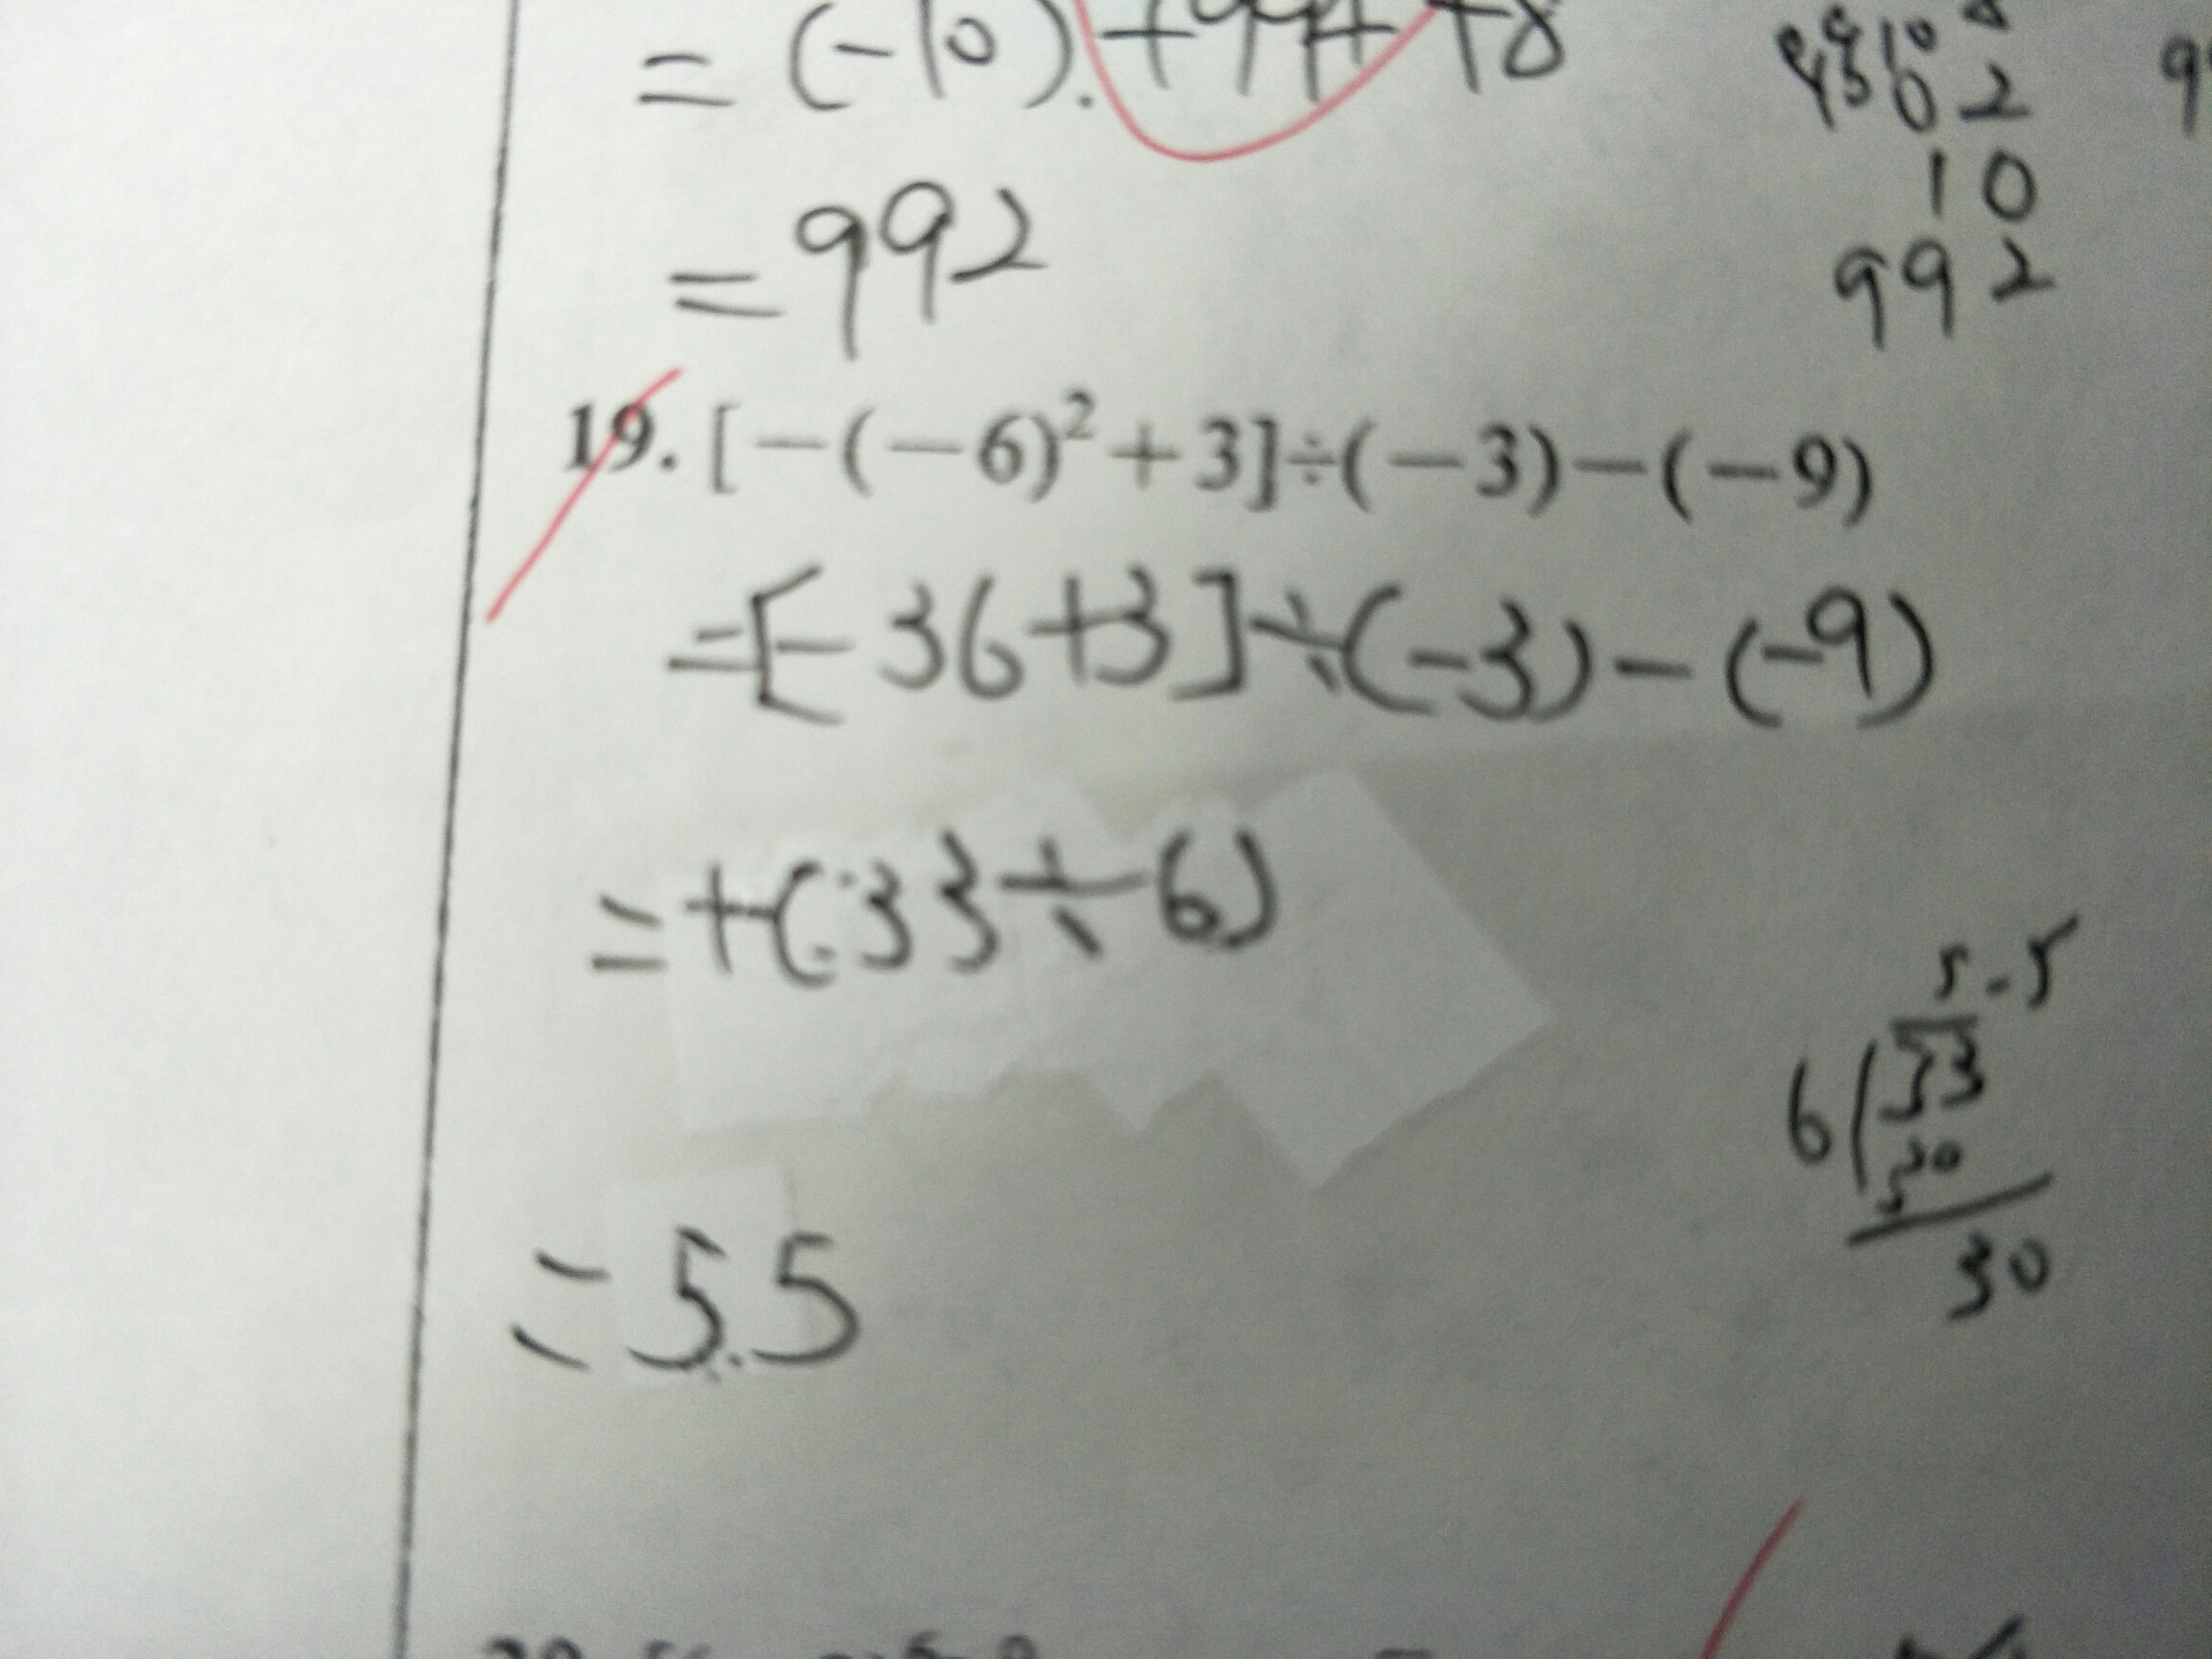 = (-10) + 994 + 8
= 992
10
992
19. [-(-6)²+3]÷(-3)-(-9)
=[-36+3]÷(-3)-(-9)
=+(33÷6)
5.5
6 33
30
30
=5.5